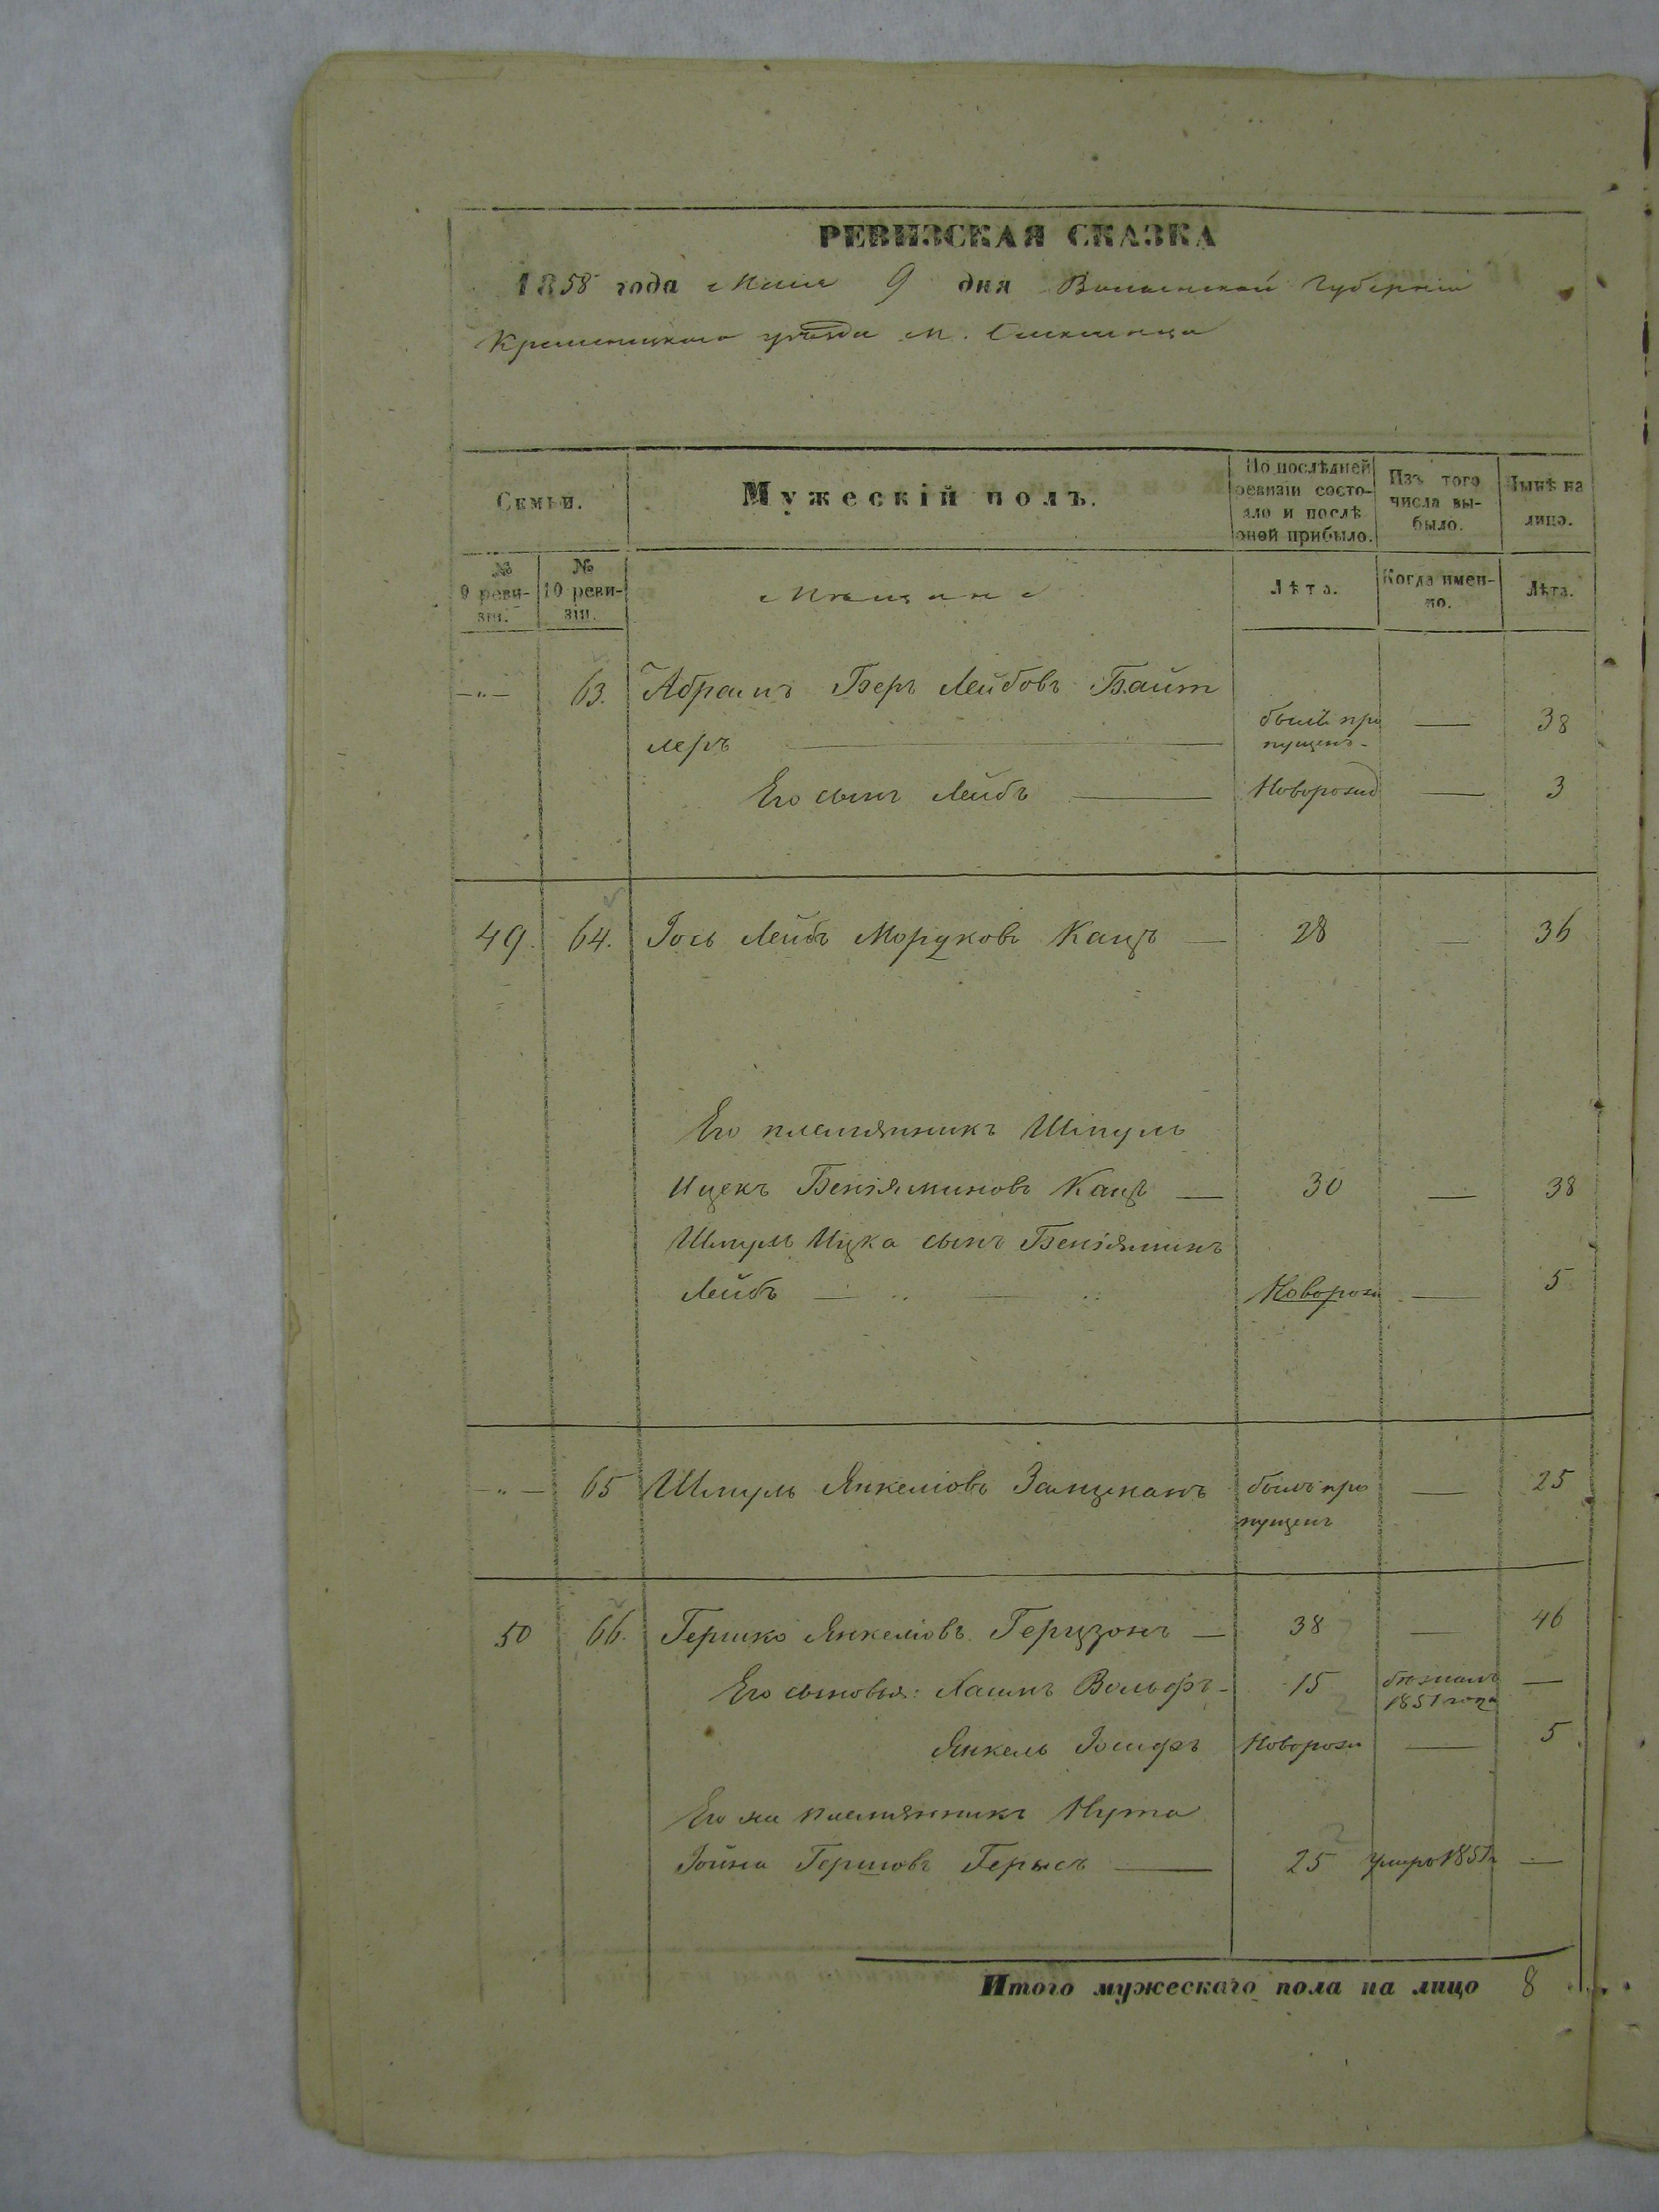 РЕВИЗСКАЯ СКАЗКА
1858 года Маія 9 дня Волынской Губерніи
Кременецкаго уѣзда м.
Семьи.
Мужескій полъ.
По послѣдней ревизіи состояло и послѣ оной прибыло.
Изъ того числа выбыло.
Нынѣ на лицо.
№ 9 ревизіи.
№ 10 ревизіи.
Мѣщане
Лѣта.
Когда именно.
Лѣта.
—"— 63. Абрамъ Беръ Лейбовъ Байт
леръ былъ пропущенъ — 38
Его сынъ Лейбъ Новорожд — 3
49. 64. Іось Лейбъ Мордковъ Кацъ — 28 — 36
Его племянникъ Шмуль
Ицекъ Беніяминовъ Кацъ — 30 — 38
Шмуль Ицка сынъ Беніяминъ
Лейбъ — Новорож — 5
—"— 65 Шмуль Янкеліовъ Залцманъ былъ пропущенъ — 25
50 66. Гершко Янкеліовъ Герцзонъ — 38 — 46
Его сыновья: Хаимъ Вольфъ - 15 бѣжалъ 1851 года —
Янкель Іосифъ Новорож — 5
Его же племянникъ Нута
Іойна Гершовъ 25 умеръ 1851г —
Итого мужескаго пола на лицо 8